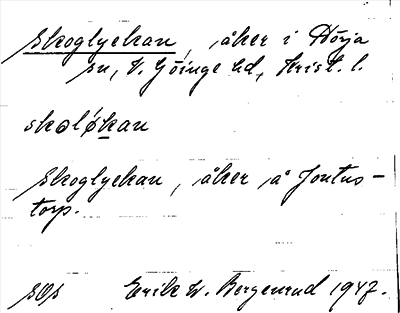 Skoglyckan, åker i Hörja
sn, V. Göinge hd, Krist. l.
skoløkan
Skoglyckan, åker å Jontus-
torp.
SOS Erik W. Bergenrud 1947.